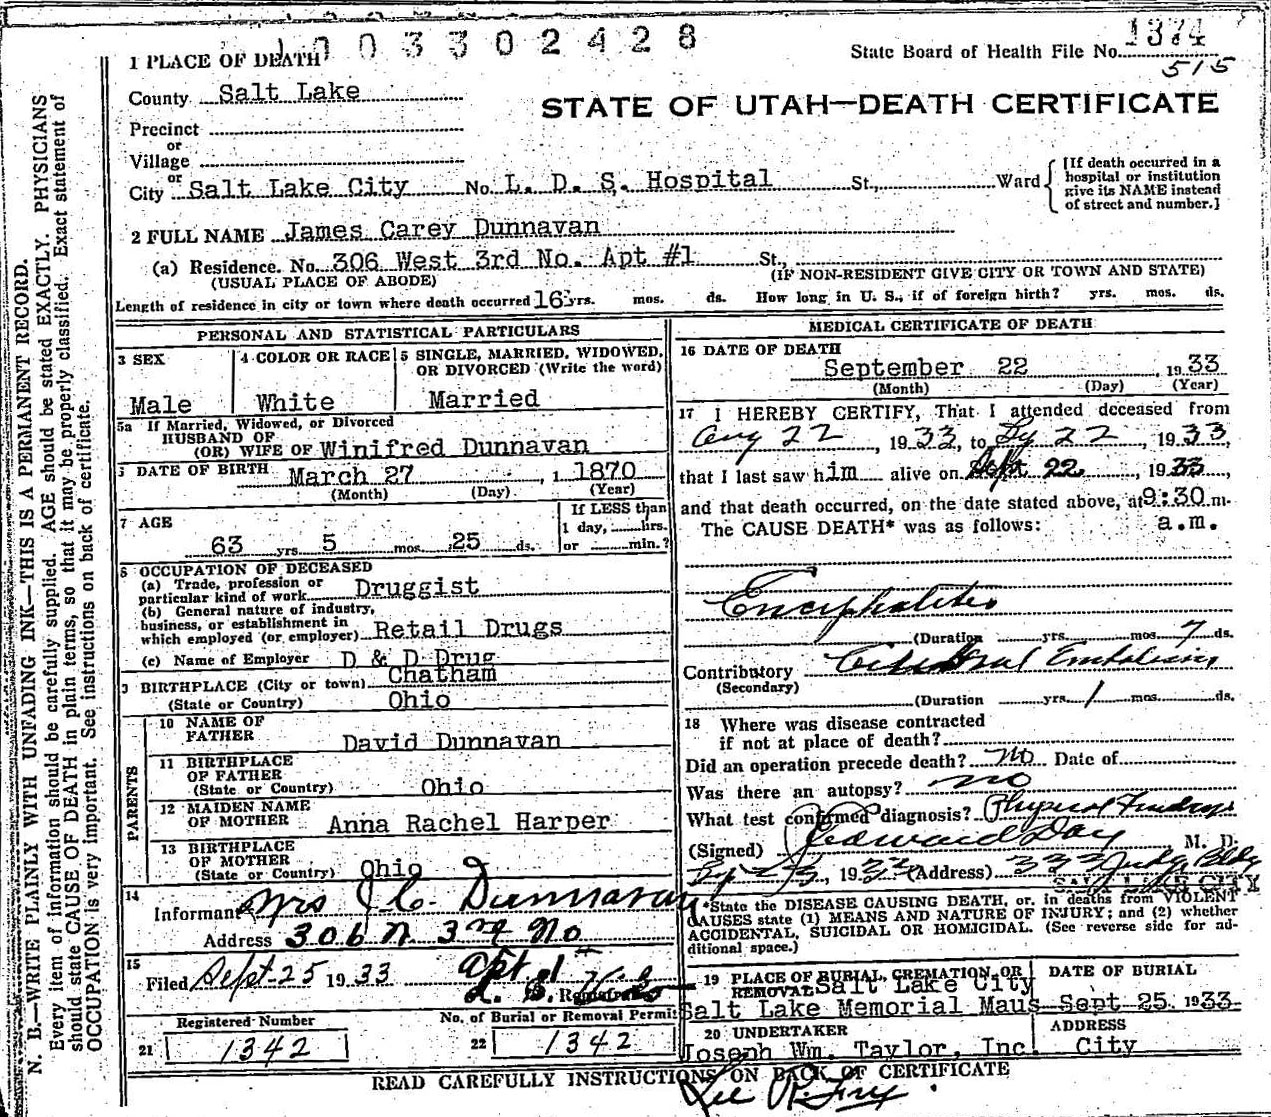 1003302428
State Board of Health File No. 1374
515
1 PLACE OF DEATH
County Salt Lake
STATE OF UTAH—DEATH CERTIFICATE
Precinct
or
Village
or
City Salt Lake City No. L. D. S. Hospital St., Ward
[If death occurred in a hospital or institution give its NAME instead of street and number.]
2 FULL NAME James Carey Dunnavan
(a) Residence. No. 306 West 3rd No. Apt #1 St.,
(USUAL PLACE OF ABODE) (IF NON-RESIDENT GIVE CITY OR TOWN AND STATE)
Length of residence in city or town where death occurred 16 yrs. mos. ds. How long in U. S., if of foreign birth? yrs. mos. ds.
PERSONAL AND STATISTICAL PARTICULARS
3 SEX
Male
4 COLOR OR RACE
White
5 SINGLE, MARRIED, WIDOWED,
OR DIVORCED (Write the word)
Married
5a If Married, Widowed, or Divorced
HUSBAND OF
(OR) WIFE OF Winifred Dunnavan
DATE OF BIRTH March 27, 1870
(Month) (Day) (Year)
7 AGE
63 yrs 5 mos. 25 ds.
If LESS than
1 day, hrs.
or min.?
8 OCCUPATION OF DECEASED
(a) Trade, profession or
particular kind of work Druggist
(b) General nature of industry,
business, or establishment in
which employed (or employer) Retail Drugs
(c) Name of Employer D & D Drug
9 BIRTHPLACE (City or town) Chatham
(State or Country) Ohio
PARENTS
10 NAME OF
FATHER David Dunnavan
11 BIRTHPLACE
OF FATHER
(State or Country) Ohio
12 MAIDEN NAME
OF MOTHER Anna Rachel Harper
13 BIRTHPLACE
OF MOTHER
(State or Country) Ohio
14
Informant Mrs J. C. Dunnavan
Address 306 W. 3rd No
Apt #1
15
Filed Sept-25 1933
Registrar
Registered Number
21 1342
No. of Burial or Removal Permit
22 1342
MEDICAL CERTIFICATE OF DEATH
16 DATE OF DEATH
September 22, 1933
(Month) (Day) (Year)
17 I HEREBY CERTIFY, That I attended deceased from
Aug 22, 1933, to 22, 1933,
that I last saw him alive on Sept 22, 1933,
and that death occurred, on the date stated above, at 9:30 m.
The CAUSE DEATH* was as follows: a.m.
Encephalitis
(Duration yrs. mos. 7 ds.
Contributory Cerebral Embolism
(Secondary)
(Duration yrs. 1 mos. ds.
18 Where was disease contracted
if not at place of death?
Did an operation precede death? no Date of
Was there an autopsy? no
What test confirmed diagnosis? Physical Findings
(Signed) Edward Day M. D.
1933 (Address) 333 Judge Bldg
SALT LAKE CITY
*State the DISEASE CAUSING DEATH, or, in deaths from VIOLENT
CAUSES state (1) MEANS AND NATURE OF INJURY; and (2) whether
ACCIDENTAL, SUICIDAL OR HOMICIDAL. (See reverse side for ad-
ditional space.)
19 PLACE OF BURIAL, CREMATION, OR
REMOVAL Salt Lake City
Salt Lake Memorial Maus
DATE OF BURIAL
Sept 25, 1933
20 UNDERTAKER
Joseph Wm. Taylor, Inc.
ADDRESS
City
READ CAREFULLY INSTRUCTIONS ON BACK OF CERTIFICATE
N. B.—WRITE PLAINLY WITH UNFADING INK—THIS IS A PERMANENT RECORD.
Every item of information should be carefully supplied. AGE should be stated EXACTLY. PHYSICIANS
should state CAUSE OF DEATH in plain terms, so that it may be properly classified. Exact statement of
OCCUPATION is very important. See instructions on back of certificate.